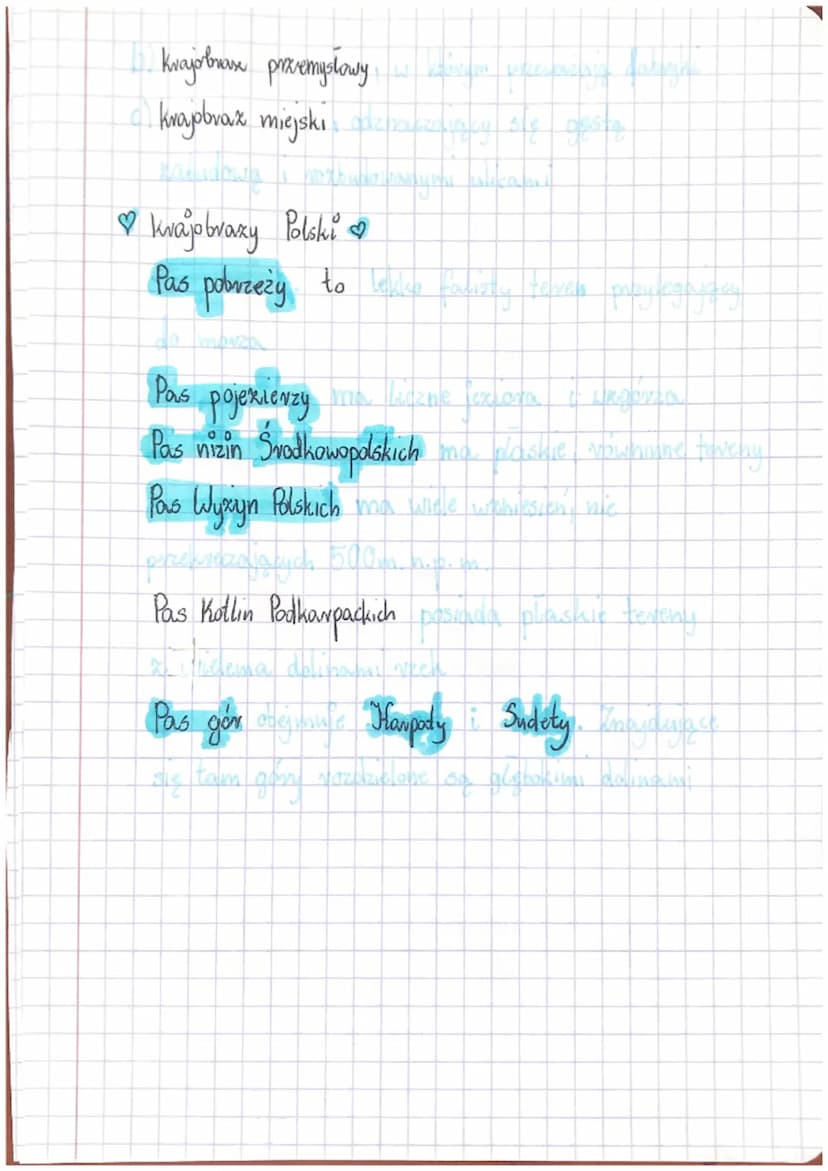 b) krajobraz przemysłowy, w którym przeważają fabryki
c) krajobraz miejski, odznaczający się gęstą
zabudową i rozbudowanymi ulicami
♡ krajobrazy Polski ♡
Pas pobrzeży to lekko falisty teren przylegający
do morza
Pas pojezierzy ma liczne jeziora i wzgórza
Pas nizin Środkowopolskich ma płaskie, równinne tereny
Pas Wyżyn Polskich ma wiele wzniesień, nie
przekraczających 500m. n.p.m.
Pas Kotlin Podkarpackich posiada płaskie tereny
z wieloma dolinami rzek
Pas gór obejmuje Karpaty i Sudety. Znajdujące
się tam góry rozdzielone są głębokimi dolinami